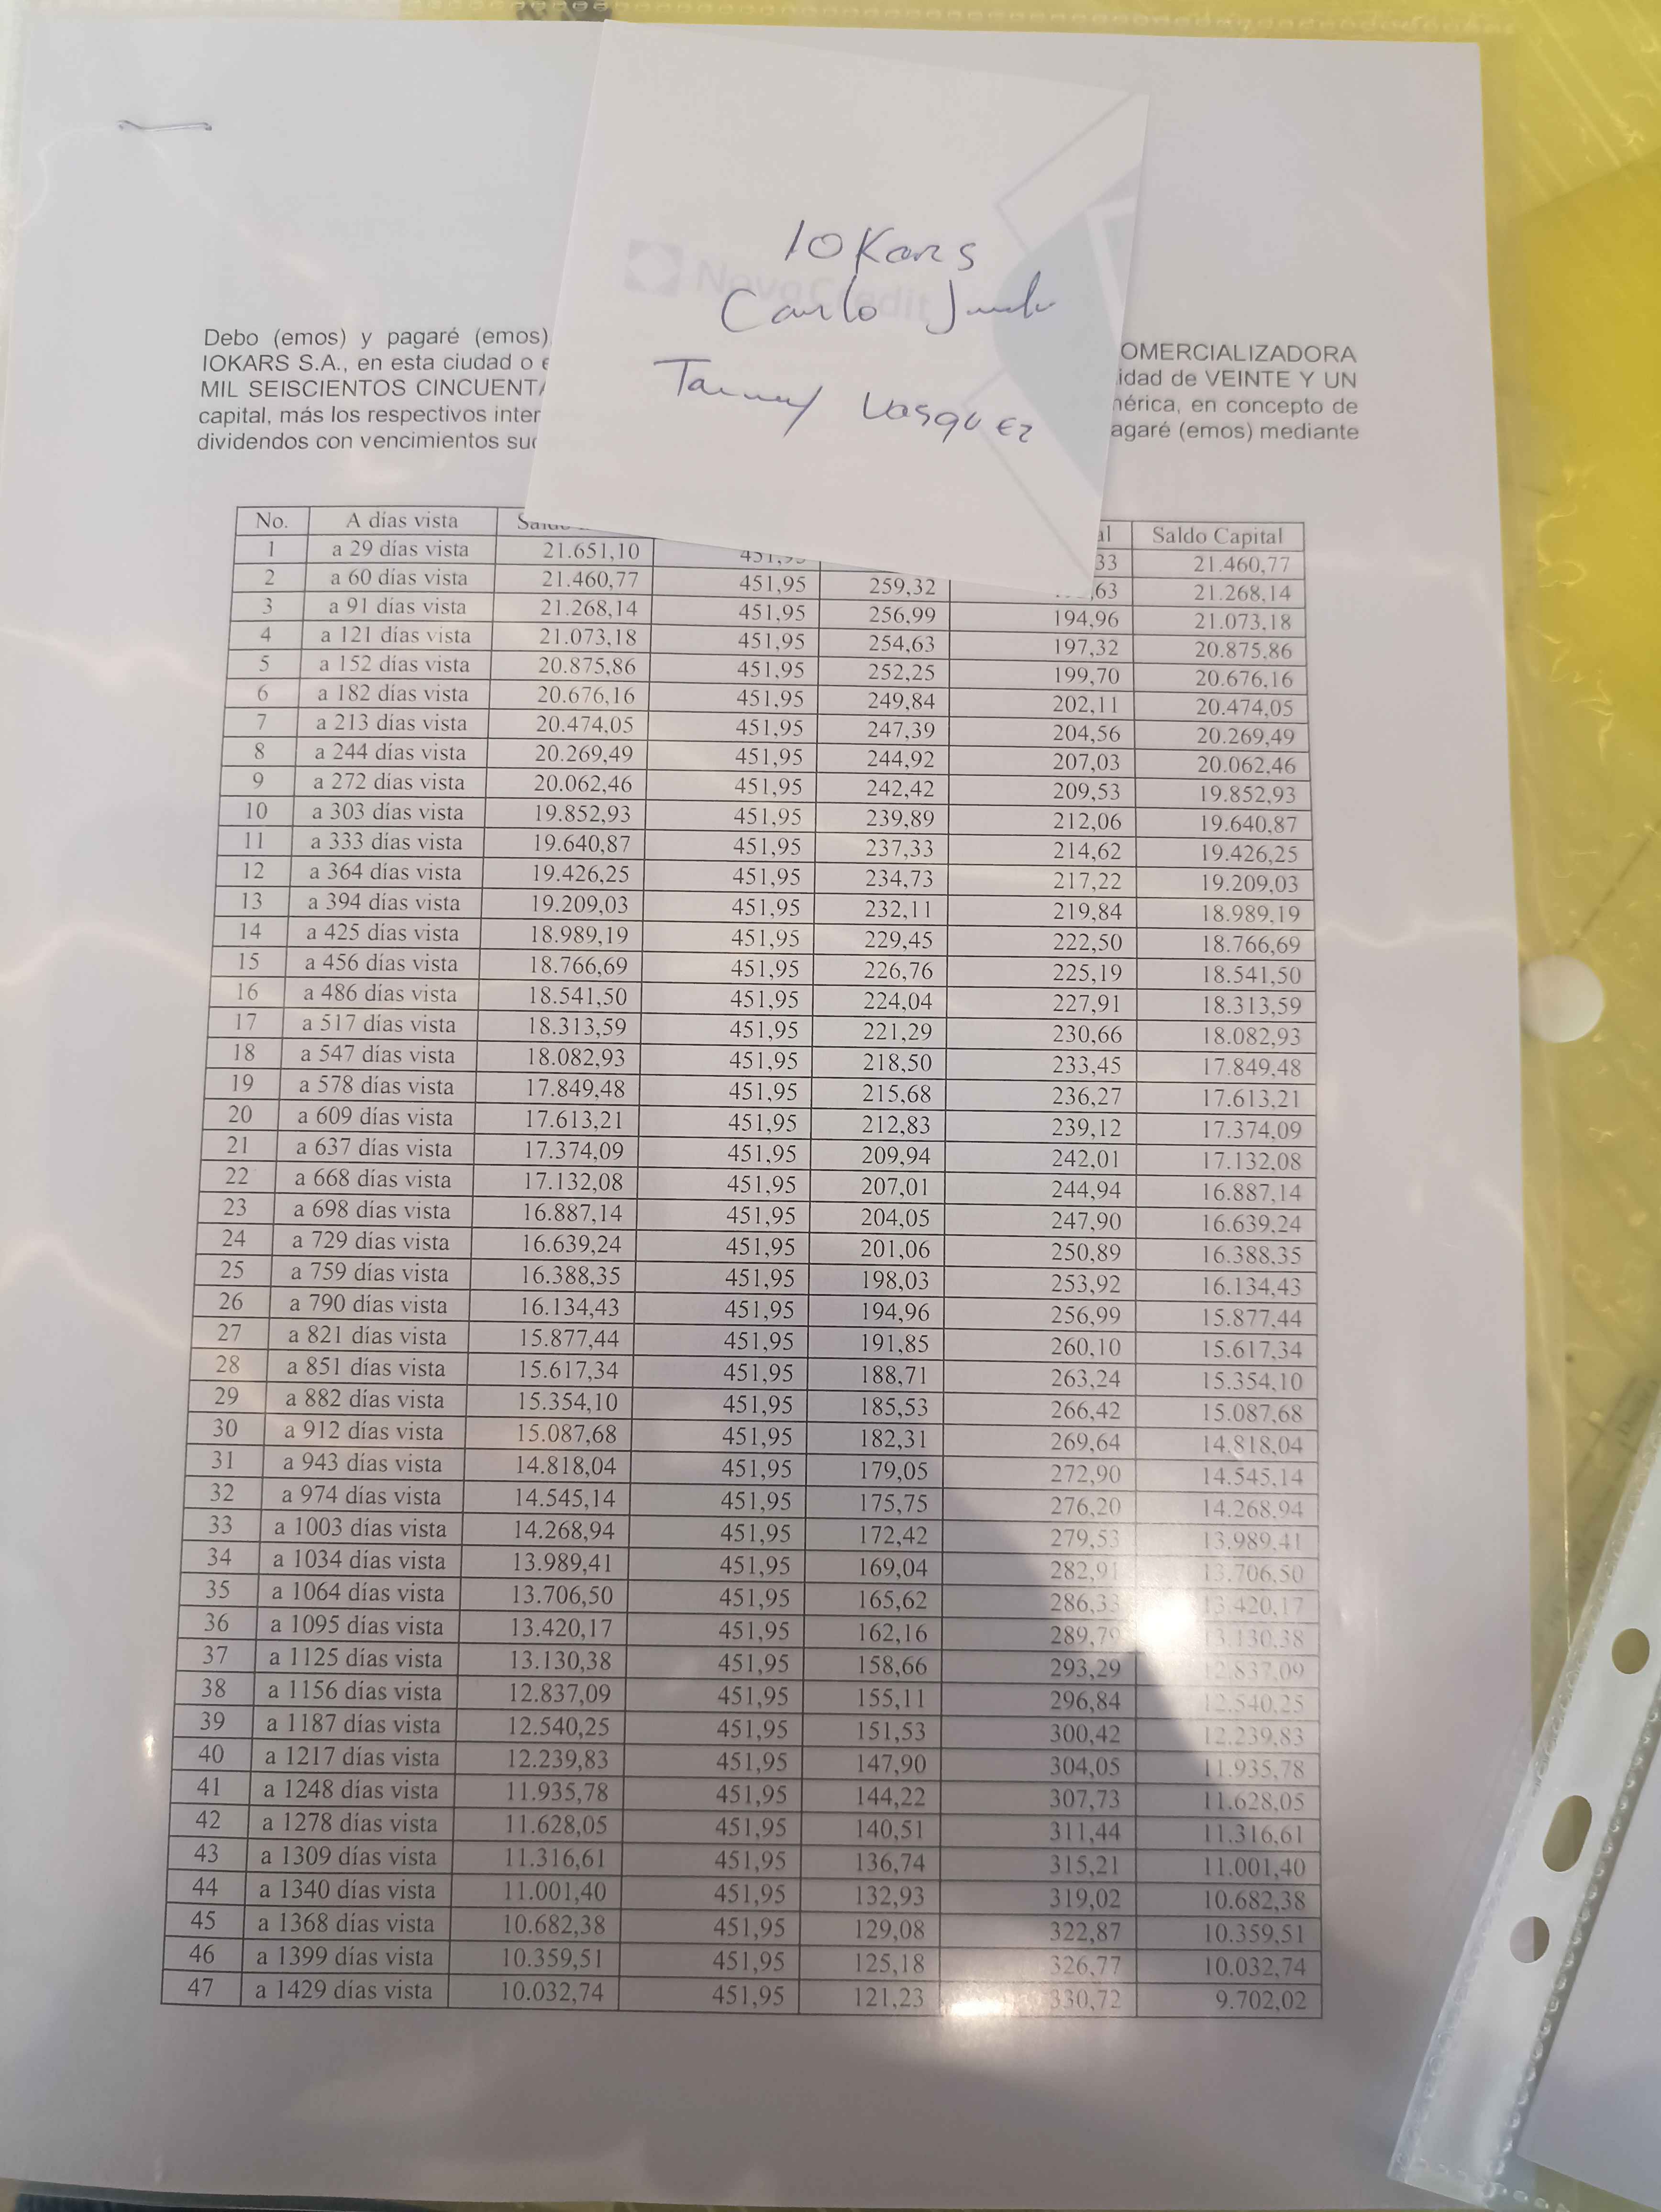 IOKars
Carlo
Tammy Vasquez
NovaCredit
Debo (emos) y pagaré (emos) OMERCIALIZADORA
IOKARS S.A., en esta ciudad o idad de VEINTE Y UN
MIL SEISCIENTOS CINCUENTA mérica, en concepto de
capital, más los respectivos inter agaré (emos) mediante
dividendos con vencimientos suc
No. A días vista Saldo al Saldo Capital
1 a 29 días vista 21.651,10 451,95 33 21.460,77
2 a 60 días vista 21.460,77 451,95 259,32 ,63 21.268,14
3 a 91 días vista 21.268,14 451,95 256,99 194,96 21.073,18
4 a 121 días vista 21.073,18 451,95 254,63 197,32 20.875,86
5 a 152 días vista 20.875,86 451,95 252,25 199,70 20.676,16
6 a 182 días vista 20.676,16 451,95 249,84 202,11 20.474,05
7 a 213 días vista 20.474,05 451,95 247,39 204,56 20.269,49
8 a 244 días vista 20.269,49 451,95 244,92 207,03 20.062,46
9 a 272 días vista 20.062,46 451,95 242,42 209,53 19.852,93
10 a 303 días vista 19.852,93 451,95 239,89 212,06 19.640,87
11 a 333 días vista 19.640,87 451,95 237,33 214,62 19.426,25
12 a 364 días vista 19.426,25 451,95 234,73 217,22 19.209,03
13 a 394 días vista 19.209,03 451,95 232,11 219,84 18.989,19
14 a 425 días vista 18.989,19 451,95 229,45 222,50 18.766,69
15 a 456 días vista 18.766,69 451,95 226,76 225,19 18.541,50
16 a 486 días vista 18.541,50 451,95 224,04 227,91 18.313,59
17 a 517 días vista 18.313,59 451,95 221,29 230,66 18.082,93
18 a 547 días vista 18.082,93 451,95 218,50 233,45 17.849,48
19 a 578 días vista 17.849,48 451,95 215,68 236,27 17.613,21
20 a 609 días vista 17.613,21 451,95 212,83 239,12 17.374,09
21 a 637 días vista 17.374,09 451,95 209,94 242,01 17.132,08
22 a 668 días vista 17.132,08 451,95 207,01 244,94 16.887,14
23 a 698 días vista 16.887,14 451,95 204,05 247,90 16.639,24
24 a 729 días vista 16.639,24 451,95 201,06 250,89 16.388,35
25 a 759 días vista 16.388,35 451,95 198,03 253,92 16.134,43
26 a 790 días vista 16.134,43 451,95 194,96 256,99 15.877,44
27 a 821 días vista 15.877,44 451,95 191,85 260,10 15.617,34
28 a 851 días vista 15.617,34 451,95 188,71 263,24 15.354,10
29 a 882 días vista 15.354,10 451,95 185,53 266,42 15.087,68
30 a 912 días vista 15.087,68 451,95 182,31 269,64 14.818,04
31 a 943 días vista 14.818,04 451,95 179,05 272,90 14.545,14
32 a 974 días vista 14.545,14 451,95 175,75 276,20 14.268,94
33 a 1003 días vista 14.268,94 451,95 172,42 279,53 13.989,41
34 a 1034 días vista 13.989,41 451,95 169,04 282,91 13.706,50
35 a 1064 días vista 13.706,50 451,95 165,62 286,33 13.420,17
36 a 1095 días vista 13.420,17 451,95 162,16 289,79 13.130,38
37 a 1125 días vista 13.130,38 451,95 158,66 293,29 12.837,09
38 a 1156 días vista 12.837,09 451,95 155,11 296,84 12.540,25
39 a 1187 días vista 12.540,25 451,95 151,53 300,42 12.239,83
40 a 1217 días vista 12.239,83 451,95 147,90 304,05 11.935,78
41 a 1248 días vista 11.935,78 451,95 144,22 307,73 11.628,05
42 a 1278 días vista 11.628,05 451,95 140,51 311,44 11.316,61
43 a 1309 días vista 11.316,61 451,95 136,74 315,21 11.001,40
44 a 1340 días vista 11.001,40 451,95 132,93 319,02 10.682,38
45 a 1368 días vista 10.682,38 451,95 129,08 322,87 10.359,51
46 a 1399 días vista 10.359,51 451,95 125,18 326,77 10.032,74
47 a 1429 días vista 10.032,74 451,95 121,23 330,72 9.702,02